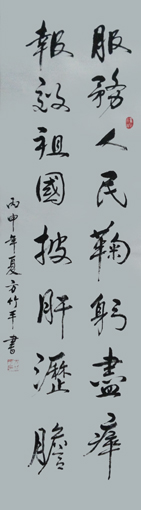 服務人民鞠躬盡瘁
報效祖國披肝瀝膽
丙申年夏方竹平書